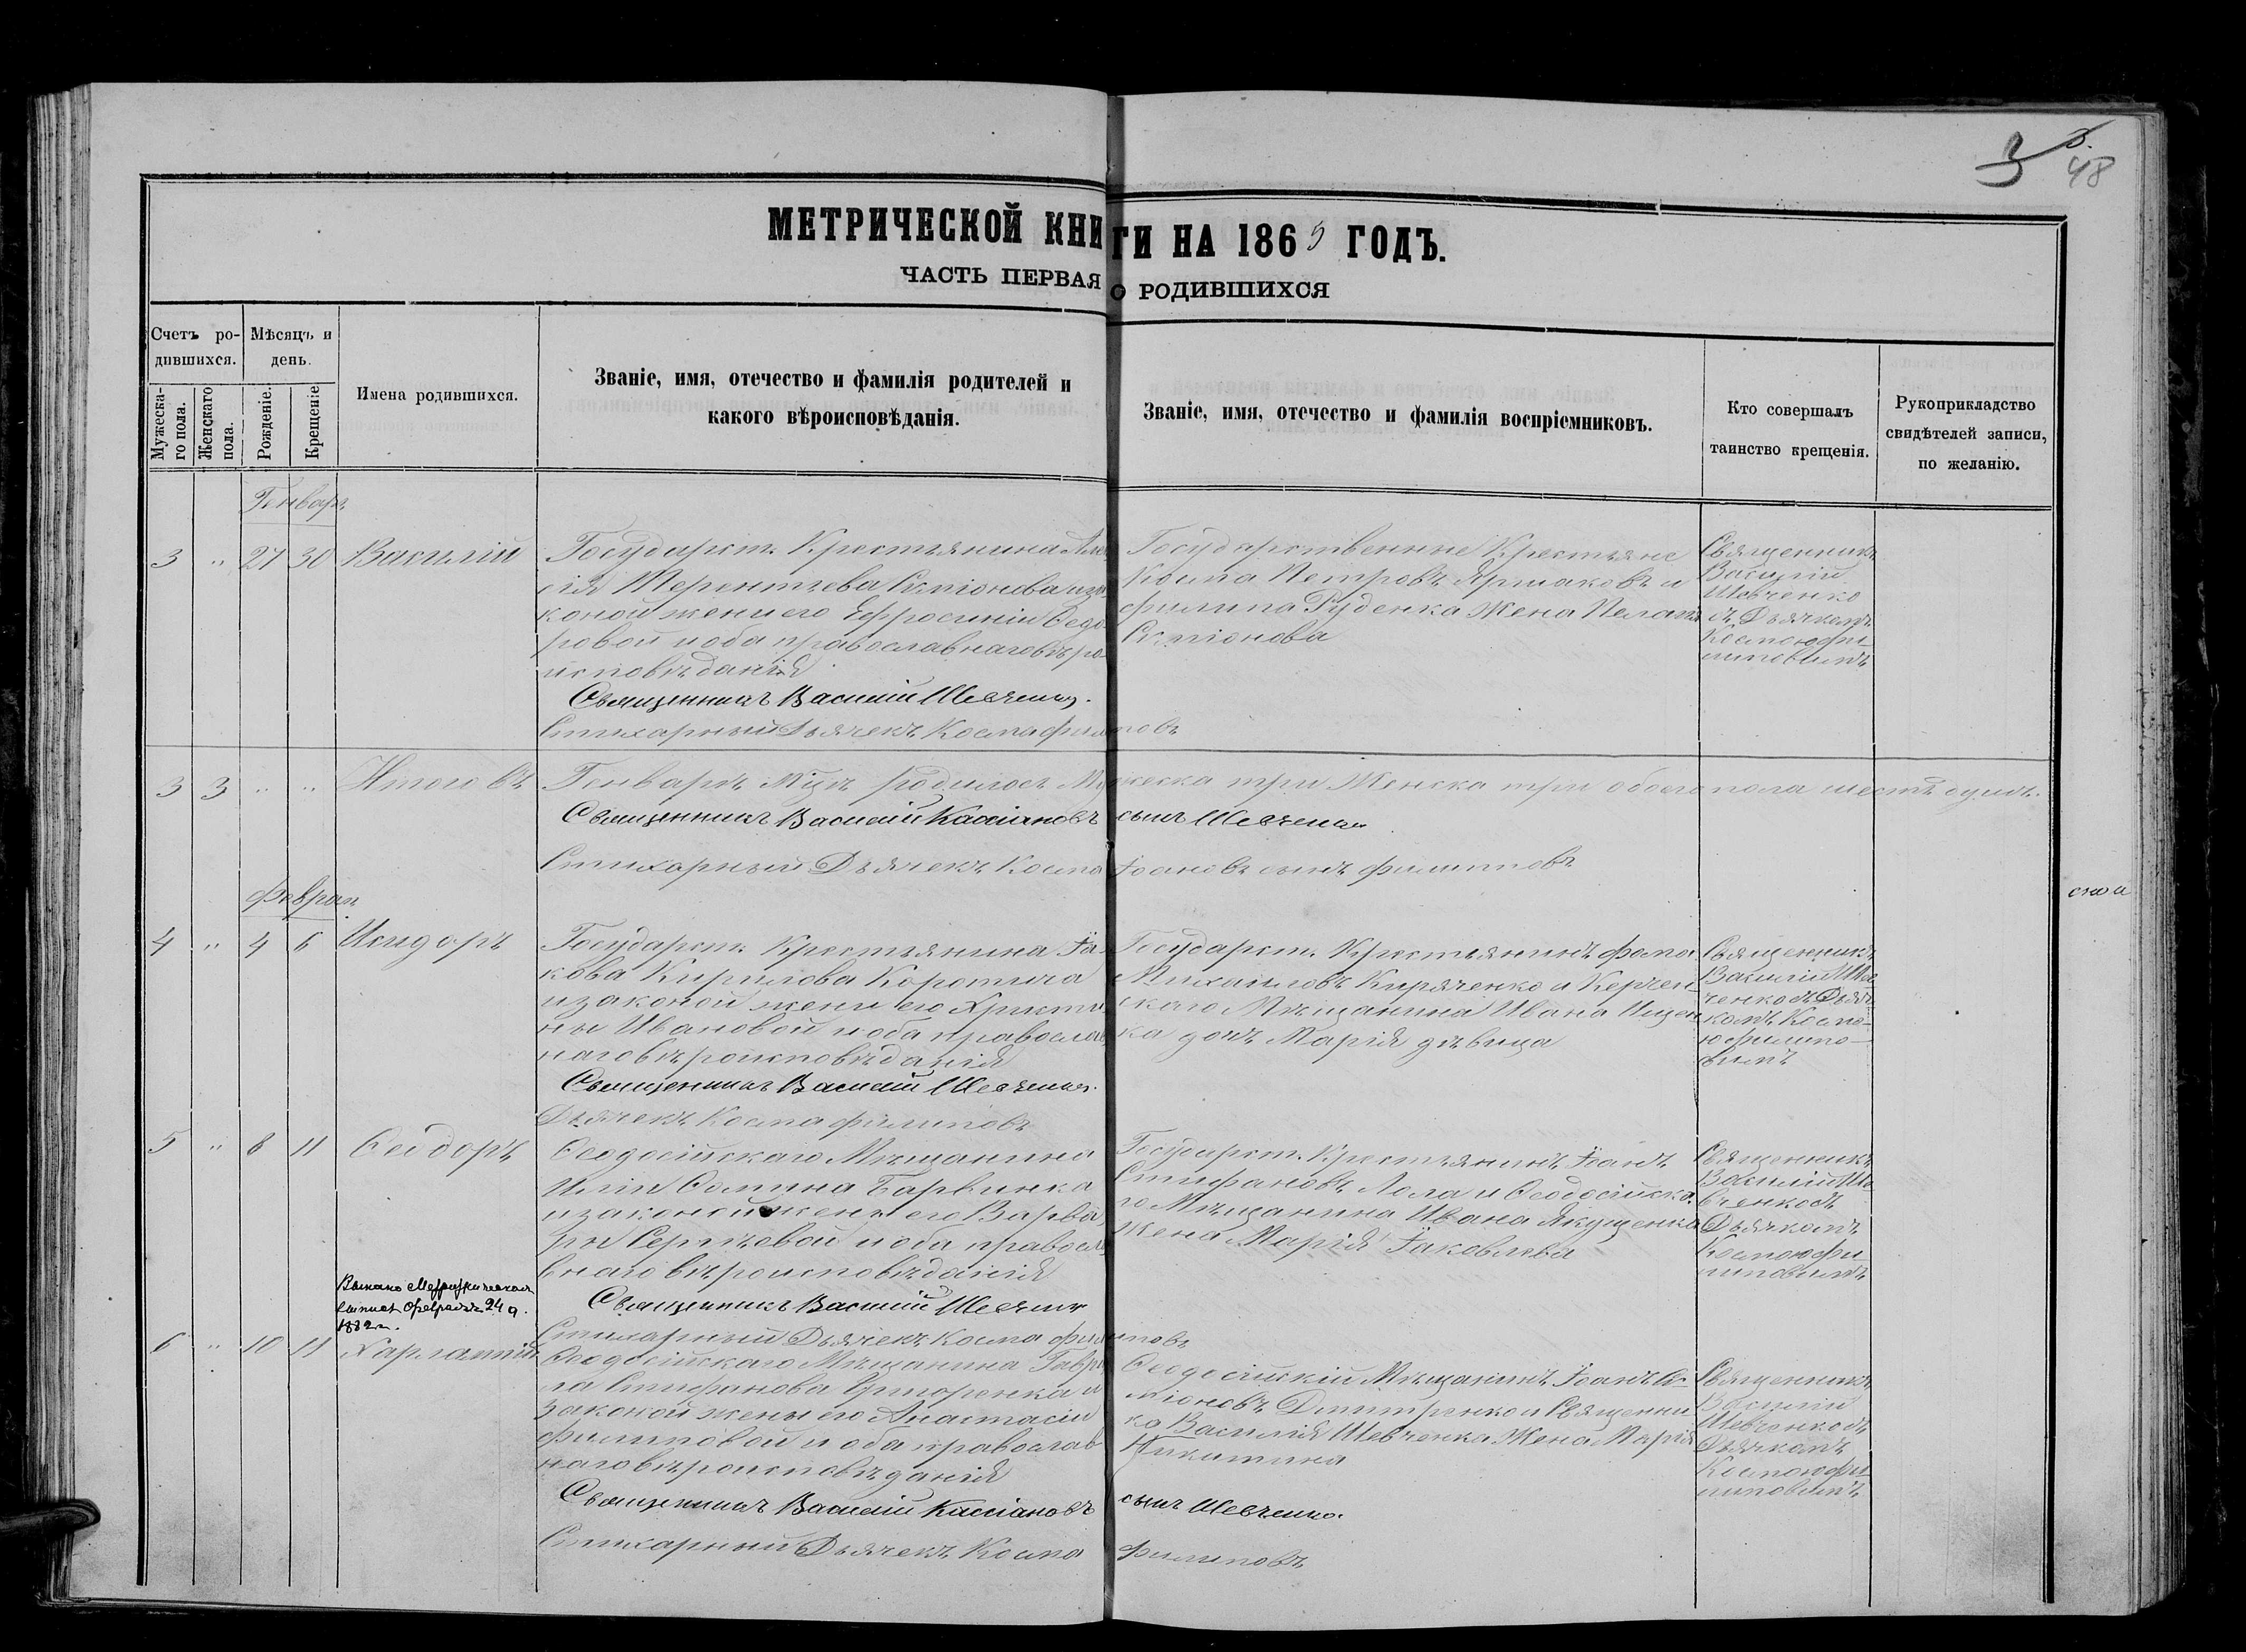 3 3.
48
МЕТРИЧЕСКОЙ КНИГИ НА 1865 ГОДЪ.
ЧАСТЬ ПЕРВАЯ О РОДИВШИХСЯ
Счетъ ро-
дившихся.
Мужеска-
го пола.
Женскаго
пола.
Мѣсяцъ и
день.
Рожденіе.
Крещеніе
Имена родившихся.
Званіе, имя, отечество и фамилія родителей и
какого вѣроисповѣданія.
Званіе, имя, отечество и фамилія воспріемниковъ.
Кто совершалъ
таинство крещенія.
Рукоприкладство
свидѣтелей записи,
по желанію.
Генварь
3 " 27 30 Василій
Государст. Крестьянина Але
сія Терентьева иза
коной жени его Ефросиніи Ѳедо
ровой и оба православнаго вѣро-
исповѣданія
Священникъ Василій Шевченко.
Стихарный Дьячекъ Косма Филиповъ
Государственные Крестьяне
Косма Петровъ Ярмаковъ и
Филипа Руденка Жена Пелагія
Священникъ
Василій
Шевченко
съ Дьячкомъ
Космою Фи-
липовымъ
3 3 " " Итого въ Генварѣ Мцѣ родилось Мужеска три Женска три обоего пола шесть душъ.
Священникъ Василій Кассіановъ сынъ Шевченко
Стихарный Дьячекъ Косма Іоановъ сынъ Филиповъ
Феврал
4 " 4 6 Исидоръ
Государст. Крестьянина Іа-
кова Кирилова Коротича
изаконой жени его Христи
ны Ивановой и оба православ
наго вѣроисповѣданія
Священникъ Василій Шевченко.
Дьячекъ Косма Филиповъ
Государст. Крестьянинъ Фома
Михаиловъ Киряченко и Керчен-
скаго Мѣщанина Ивана Ищен
ка дочь Марія дѣвица
Священникъ
Василій Шев
ченко съ Дьяч
комъ Космо-
ю Филипо-
вымъ
5 " 8 11 Ѳеодоръ
Ѳеодосійскаго Мѣщанина
Иліи Ѳомина Барвинка
изаконой жены его Варва
ры Сергѣевой и оба правосла
внаго вѣроисповѣданія
Священникъ Василій Шевченко
Стихарный Дьячекъ Косма Филиповъ
Государст. Крестьянинъ Іоанъ
Стифановъ Лола и Ѳеодосійска
го Мѣщанина Ивана Якущенка
Жена Марія Іаковлева
Священникъ
Василій Ше
вченко съ
Дьячкомъ
Космою Фи
липовымъ
Выдано Метрическая
выпись Февраля 24 д.
1882 г.
6 " 10 11 Харлампій
Ѳеодосійскаго Мѣщанина Гаври
ла Стифанова и
законой жены его Анастасіи
Филиповой и оба православ
наго вѣроисповѣданія
Священникъ Василій Кассіановъ сынъ Шевченко.
Стихарный Дьячекъ Косма Филиповъ
Ѳеодосійскій Мѣщанинъ Іоанъ
Дмитренко и Священни
ка Василія Шевченка Жена Марія
Никитина
Священникъ
Василій
Шевченко съ
Дьячкомъ
Космою Фи
липовымъ